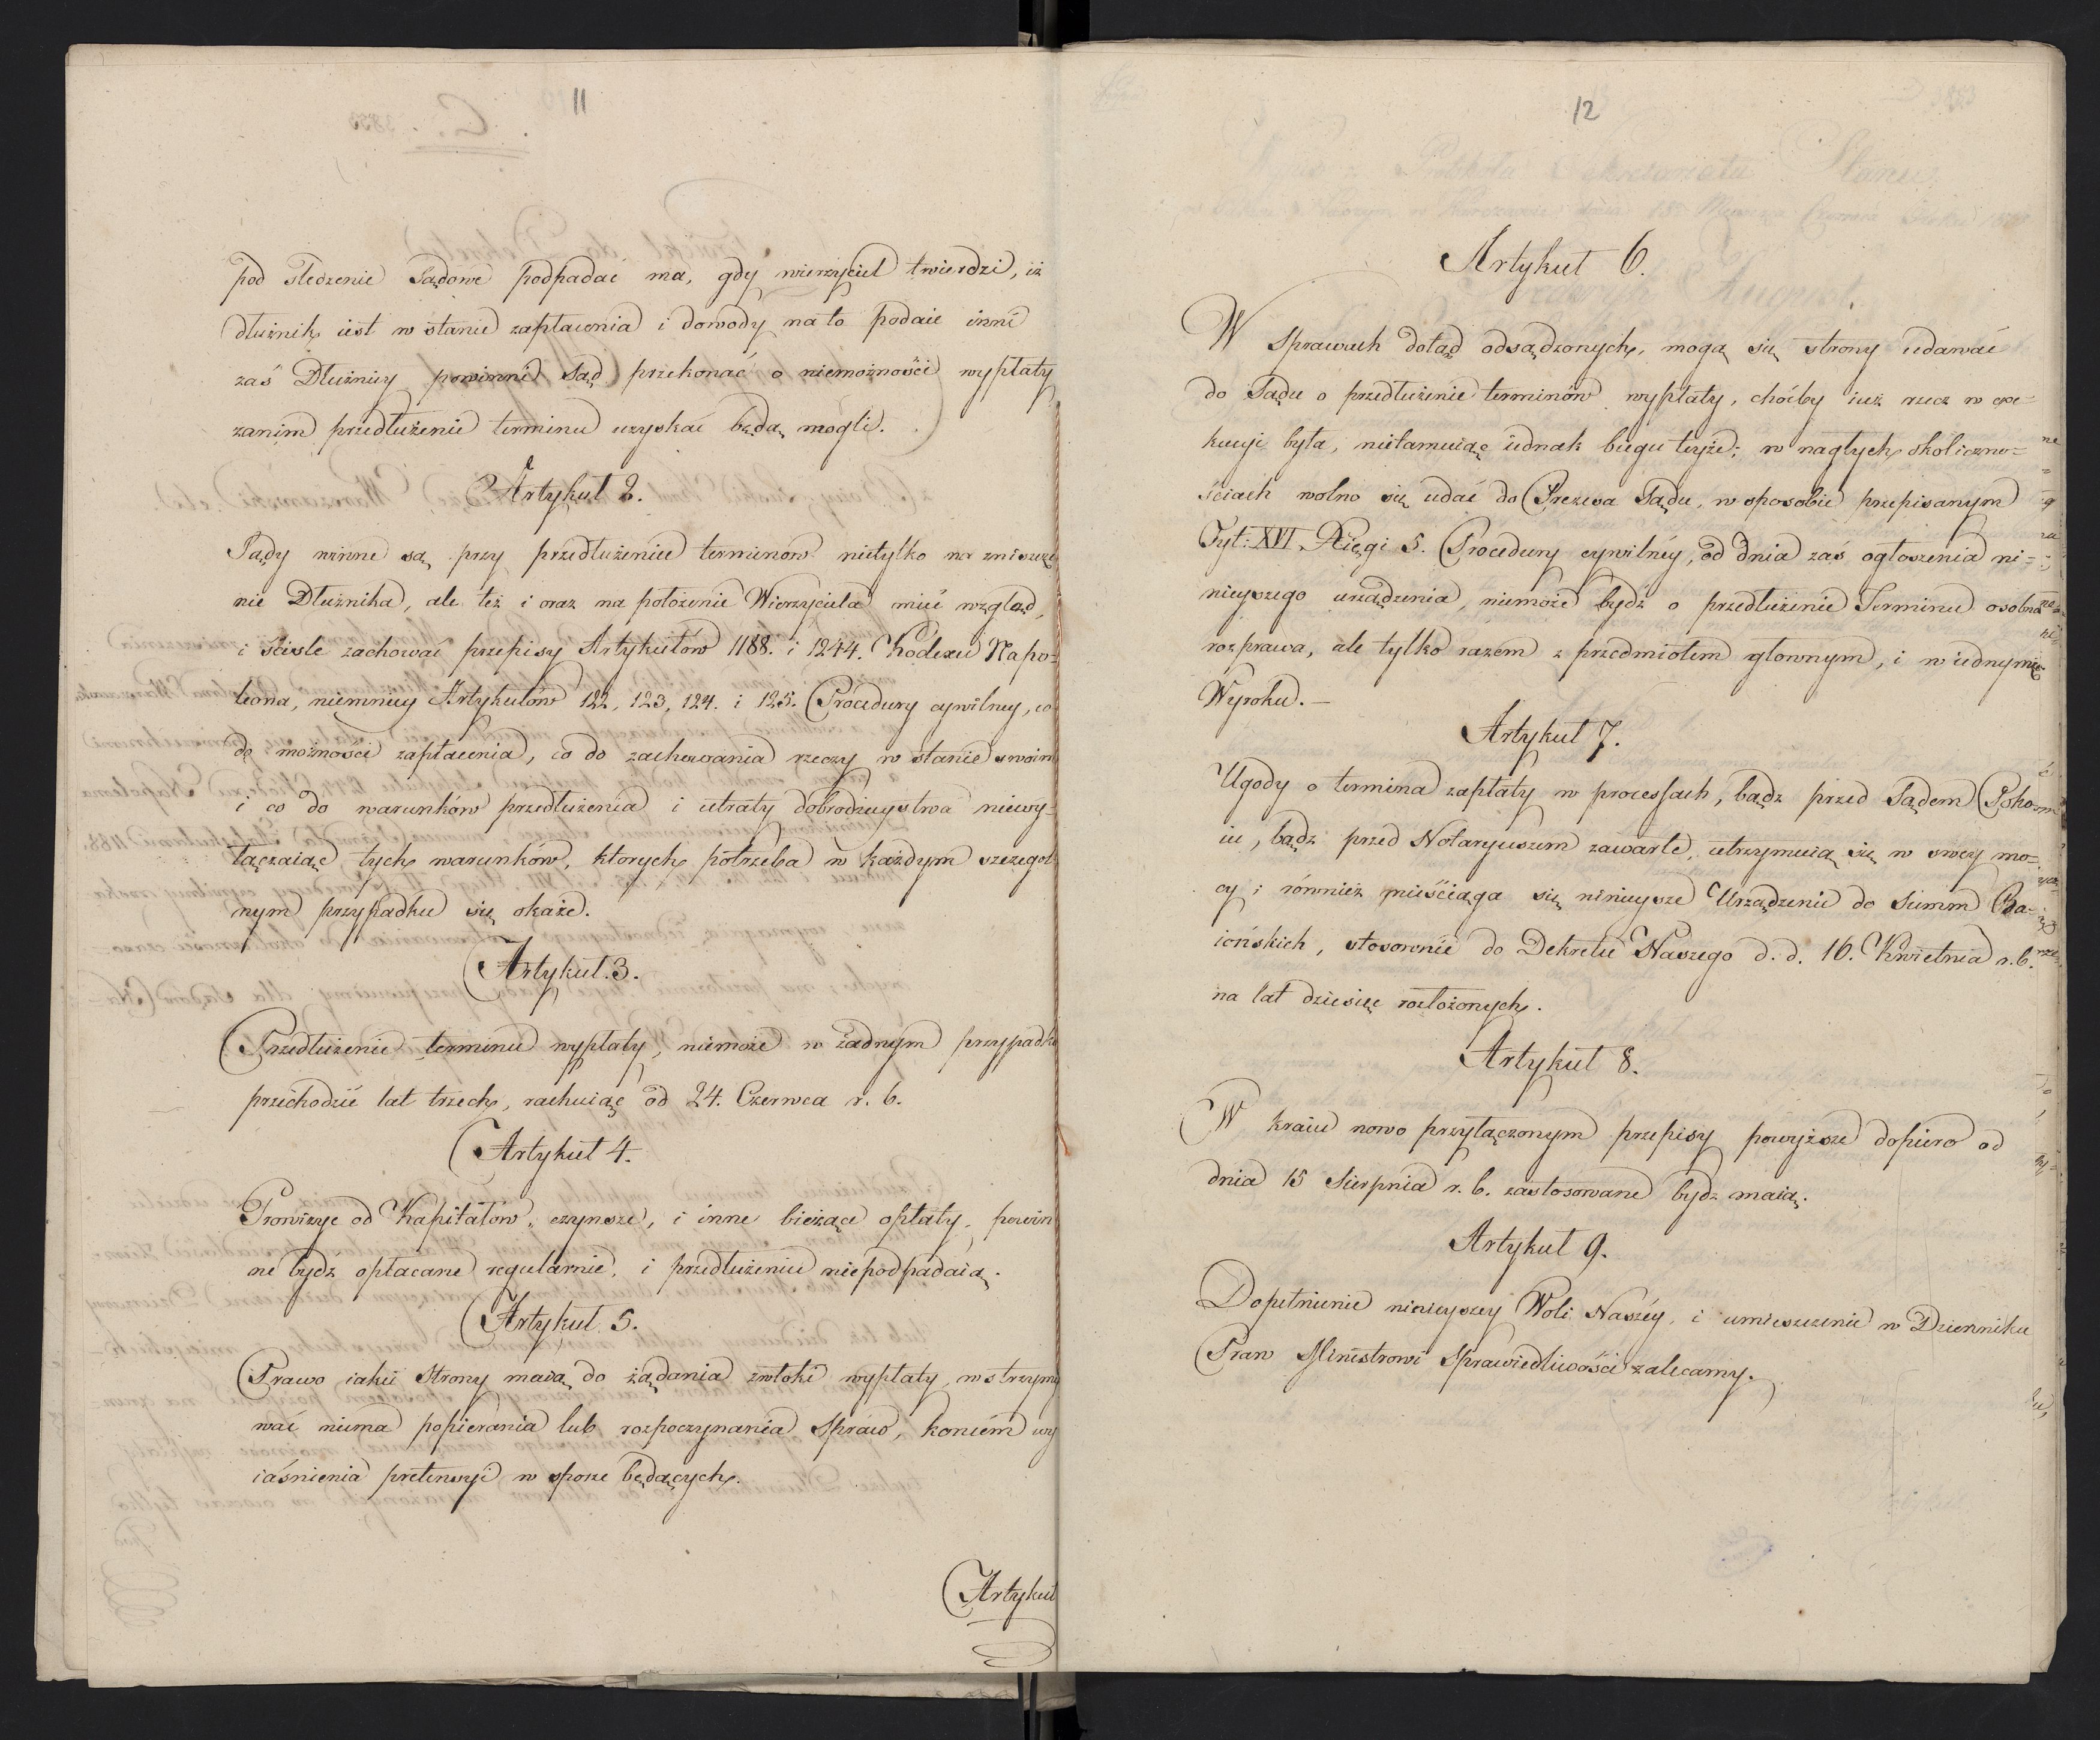 11
pod sledzenie Sądowe podpadać ma, gdy wierzyciel twierdzi, iż
dłużnik iest w stanie zapłacenia i dowody na to podaie inni
zaś Dłużnicy powinni Sąd przekonać o niemożności wypłaty
zanim przedłużenie terminu uzyskać będą mogli.
Artykuł 2.
Sądy winne są przy przedłużeniu terminów nietylko na zniszcze
nie Dłużnika, ale też i oraz na położenie Wierzyciela mieć wzgląd,
i ścisle zachować przepisy Artykułów 1188. i 1244. Kodexu Napo=
leona, niemniey Artykułów 122, 123, 124. i 125. Procedury cywilney, co
do możności zapłacenia, co do zachowania rzeczy w stanie swoim
i co do warunków przedłużenia i utraty dobrodzieystwa niewy=
łączaiąc tych warunków, ktorych potrzeba w każdym szczegol
nym przypadku się okaże.
Artykuł 3.
Przedłużenie terminu wypłaty, niemoże w żadnym przypadku
przechodzić lat trzech, rachuiąc od 24. Czerwca r. b.
Artykuł 4.
Prowizye od Kapitałów, czynsze, i inne bieżące opłaty, powin
ne bydź opłacane regularnie, i przedłużeniu niepodpadaią.
Artykuł 5.
Prawo iakie Strony maią do żądania zwłoki wypłaty, wstrzymy
wać niema popierania lub rozpoczynania Spraw, koncem wy
iaśnienia pretensyi w sporze będących.
Artykuł
12
Artykuł 6.
W Sprawach dotąd odsądzonych, mogą się strony udawać
do Sądu o przedłużenie terminów wypłaty, chóćby iuż rzecz w exe=
kucyi była, niełamuiąc iednak biegu teyże; w nagłych okoliczno=
ściach wolno się udać do Prezesa Sądu, w sposobie przepisanym
Tyt: XVI Xięgi 5. Procedury cywilnéy, od dnia zaś ogłoszenia ni=
nieyszego urządzenia, niemoże bydź o przedłużenie Terminu osobna
rozprawa, ale tylko razem z przedmiotem głownym, i w iednymże
Wyroku. —
Artykuł 7.
Ugody o termina zapłaty w processach, bądz przed Sądem Poko=
iu, bądz przed Notaryuszem zawarte, utrzymuią się w swey mo=
cy; również nieściąga się ninieysze Urządzenie do Summ Ba=
iońskich, stosownie do Dekretu Naszego d. d. 16. Kwietnia r. b.
na lat dziesięć rozłożonych.
Artykuł 8.
W kraiu nowo przyłączonym przepisy powyższe dopiero od
dnia 15 Sierpnia r. b. zastosowane bydz maią.
Artykuł 9.
Dopełnienie ninieyszey Woli Naszéy, i umieszczenie w Dzienniku
Praw Ministrowi Sprawiedliwości zalecamy.